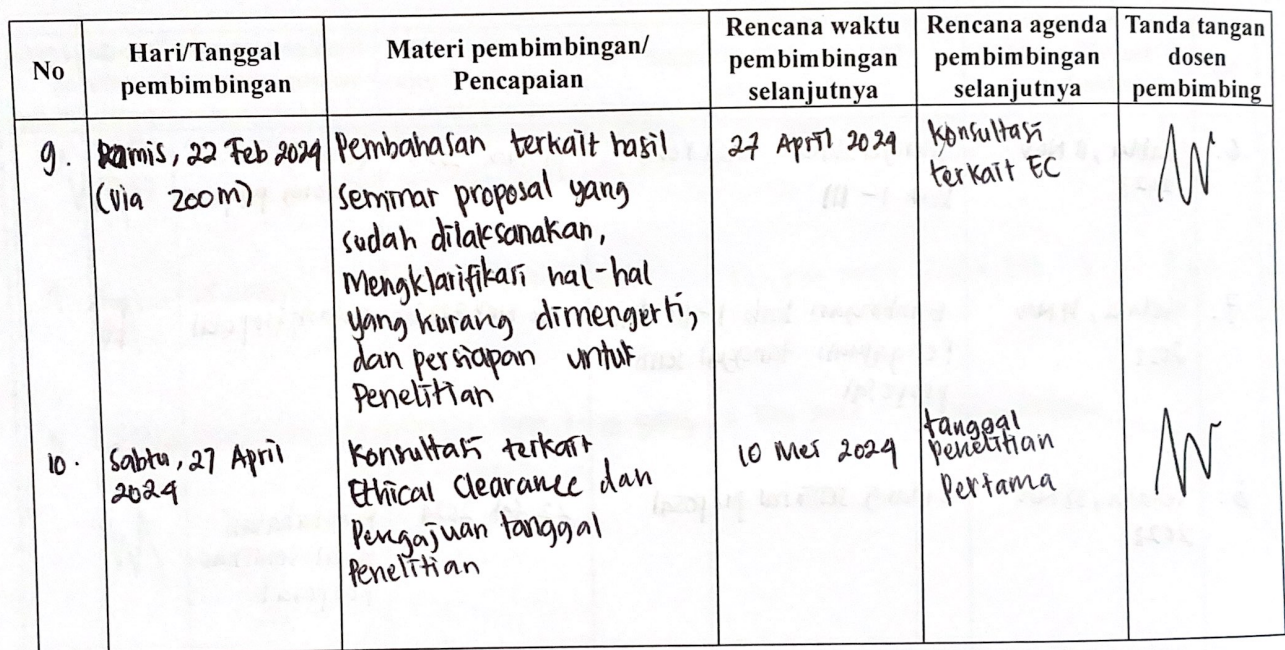 No
Hari/Tanggal
pembimbingan
Materi pembimbingan/
Pencapaian
Rencana waktu
pembimbingan
selanjutnya
Rencana agenda
pembimbingan
selanjutnya
Tanda tangan
dosen
pembimbing
9.
Kamis, 22 Feb 2024
(via zoom)
Pembahasan terkait hasil
Seminar proposal yang
sudah dilaksanakan,
Mengklarifikasi hal-hal
yang kurang dimengerti,
dan persiapan untuk
Penelitian
27 April 2024
Konsultasi
terkait EC
10.
Sabtu, 27 April
2024
Konsultasi terkait
Ethical Clearance dan
Pengajuan tanggal
Penelitian
10 Mei 2024
tanggal
Penelitian
Pertama